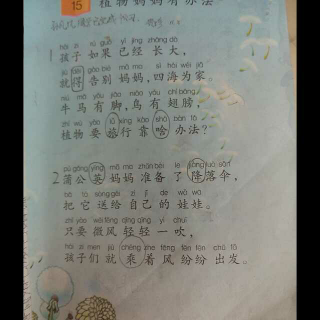 15 植物妈妈有办法
hái zi rú guǒ yǐ jīng zhǎng dà
1 孩子如果已经长大，
jiù děi gào bié mā ma sì hǎi wéi jiā
就得告别妈妈，四海为家。
niú mǎ yǒu jiǎo niǎo yǒu chì bǎng
牛马有脚，鸟有翅膀，
zhí wù yào lǚ xíng kào shá bàn fǎ
植物要旅行靠啥办法？
pú gōng yīng mā ma zhǔn bèi le jiàng luò sǎn
2 蒲公英妈妈准备了降落伞，
bǎ tā sòng gěi zì jǐ de wá wa
把它送给自己的娃娃。
zhǐ yào wēi fēng qīng qīng yì chuī
只要微风轻轻一吹，
hái zi men jiù chéng zhe fēng fēn fēn chū fā
孩子们就乘着风纷纷出发。